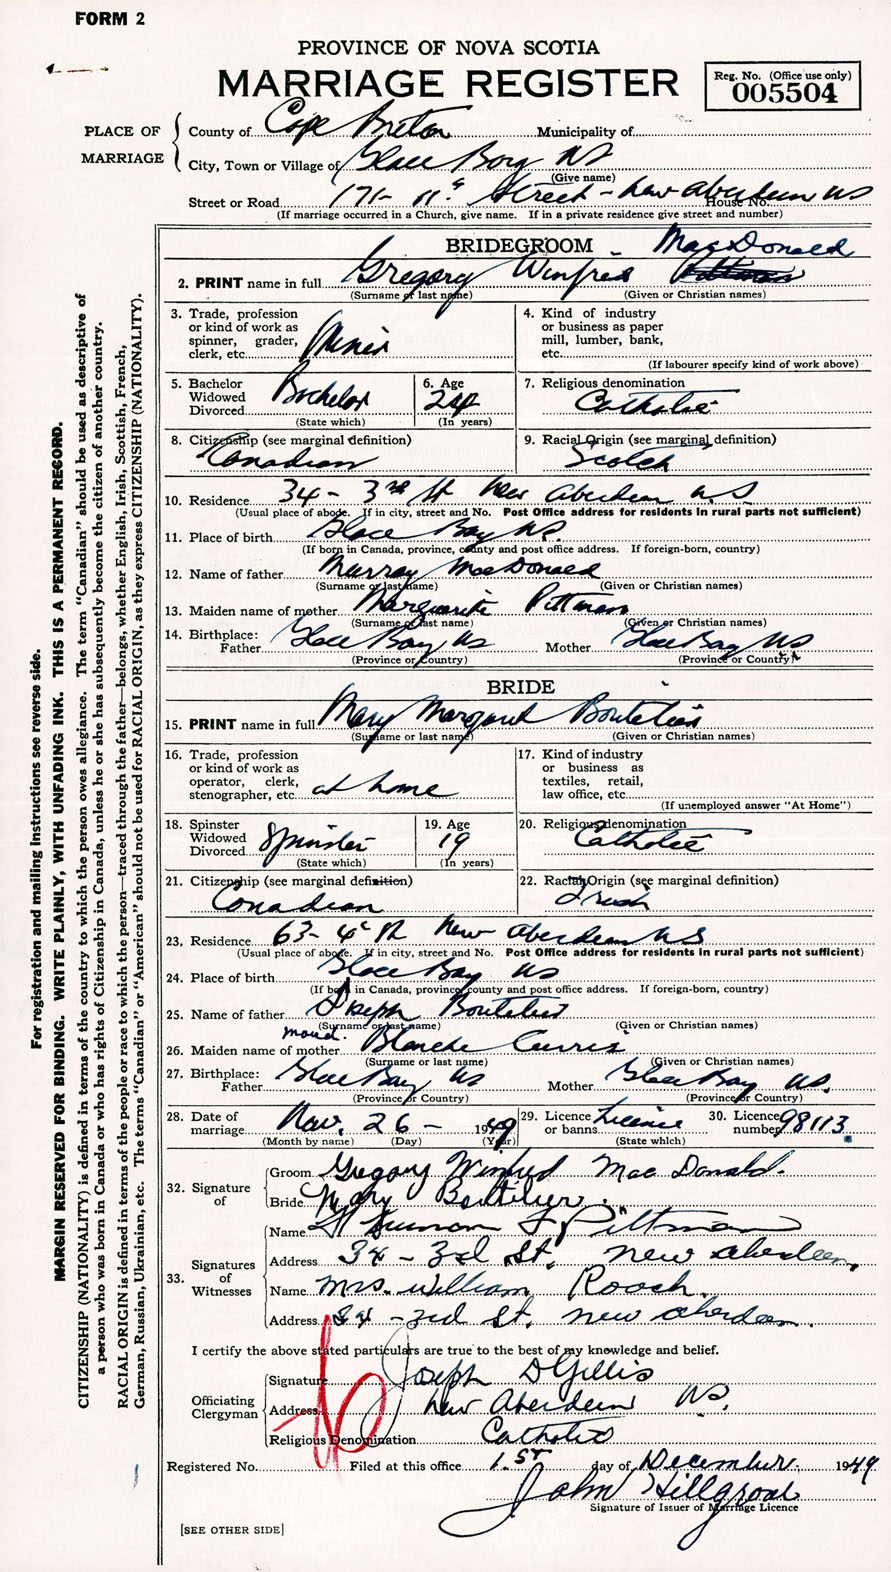 FORM 2
PROVINCE OF NOVA SCOTIA
MARRIAGE REGISTER
Reg. No. (Office use only)
005504
PLACE OF MARRIAGE
County of Cape Breton Municipality of
City, Town or Village of Glace Bay NS
(Give name)
Street or Road 171- 11th Street - New Aberdeen NS House No.
(If marriage occurred in a Church, give name. If in a private residence give street and number)
BRIDEGROOM
2. PRINT name in full Gregory Winfrid MacDonald
(Surname or last name) (Given or Christian names)
3. Trade, profession or kind of work as spinner, grader, clerk, etc. Miner
4. Kind of industry or business as paper mill, lumber, bank, etc.
(If labourer specify kind of work above)
5. Bachelor Widowed Divorced Bachelor
(State which)
6. Age 24
(In years)
7. Religious denomination
Catholic
8. Citizenship (see marginal definition)
Canadian
9. Racial Origin (see marginal definition)
Scotch
10. Residence 34 - 3rd St New Aberdeen N.S.
(Usual place of abode. If in city, street and No. Post Office address for residents in rural parts not sufficient)
11. Place of birth Glace Bay NS.
(If born in Canada, province, county and post office address. If foreign-born, country)
12. Name of father Murray MacDonald
(Surname or last name) (Given or Christian names)
13. Maiden name of mother Marguerite Pittman
(Surname or last name) (Given or Christian names)
14. Birthplace: Father Glace Bay NS Mother Glace Bay NS
(Province or Country) (Province or Country)
BRIDE
15. PRINT name in full Mary Margaret Boutilier
(Surname or last name) (Given or Christian names)
16. Trade, profession or kind of work as operator, clerk, stenographer, etc. at home
17. Kind of industry or business as textiles, retail, law office, etc.
(If unemployed answer "At Home")
18. Spinster Widowed Divorced Spinster
(State which)
19. Age 19
(In years)
20. Religious denomination
Catholic
21. Citizenship (see marginal definition)
Canadian
22. Racial Origin (see marginal definition)
Irish
23. Residence 63- 4th St New Aberdeen NS
(Usual place of abode. If in city, street and No. Post Office address for residents in rural parts not sufficient)
24. Place of birth Glace Bay NS
(If born in Canada, province, county and post office address. If foreign-born, country)
25. Name of father Joseph Boutilier
(Surname or last name) (Given or Christian names)
26. Maiden name of mother Blanche Currie
(Surname or last name) (Given or Christian names)
27. Birthplace: Father Glace Bay NS Mother Glace Bay NS.
(Province or Country) (Province or Country)
28. Date of marriage Nov. 26 - 1949
(Month by name) (Day) (Year)
29. Licence or banns Licence
(State which)
30. Licence number 98113
32. Signature of
Groom Gregory Winfred MacDonald.
Bride Mary Boutilier.
33. Signatures of Witnesses
Name Pittman
Address 34 - 3rd St. New Aberdeen,
Name Mrs. William Roach.
Address 34 - 3rd St. New Aberdeen.
I certify the above stated particulars are true to the best of my knowledge and belief.
Officiating Clergyman
Signature Joseph D Gillis
Address New Aberdeen NS.
Religious Denomination Catholic
Registered No. Filed at this office 1.st day of December, 1949
John Hillgrove
Signature of Issuer of Marriage Licence
[SEE OTHER SIDE]
For registration and mailing instructions see reverse side.
MARGIN RESERVED FOR BINDING. WRITE PLAINLY, WITH UNFADING INK. THIS IS A PERMANENT RECORD.
CITIZENSHIP (NATIONALITY) is defined in terms of the country to which the person owes allegiance. The term "Canadian" should be used as descriptive of
a person who was born in Canada or who has rights of Citizenship in Canada, unless he or she has subsequently become the citizen of another country.
RACIAL ORIGIN is defined in terms of the people or race to which the person—traced through the father—belongs, whether English, Irish, Scottish, French,
German, Russian, Ukrainian, etc. The terms "Canadian" or "American" should not be used for RACIAL ORIGIN, as they express CITIZENSHIP (NATIONALITY).